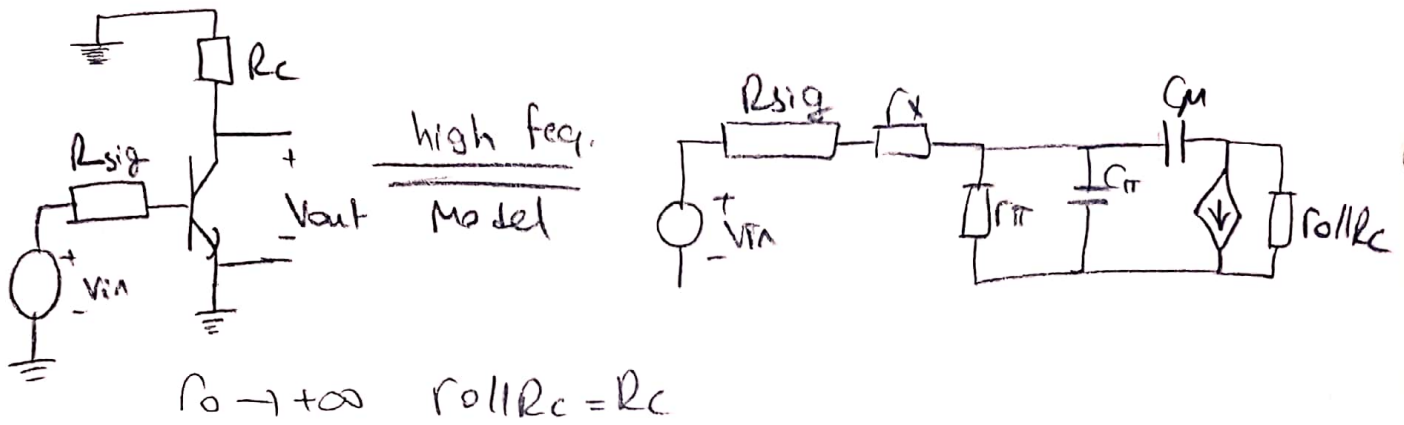 Rc
Rsig
+
Vout
-
+
Vin
-
high feq.
Model
Rsig
rx
Cμ
+
Vin
-
rπ
Cπ
ro||Rc
ro → +∞ ro||Rc = Rc